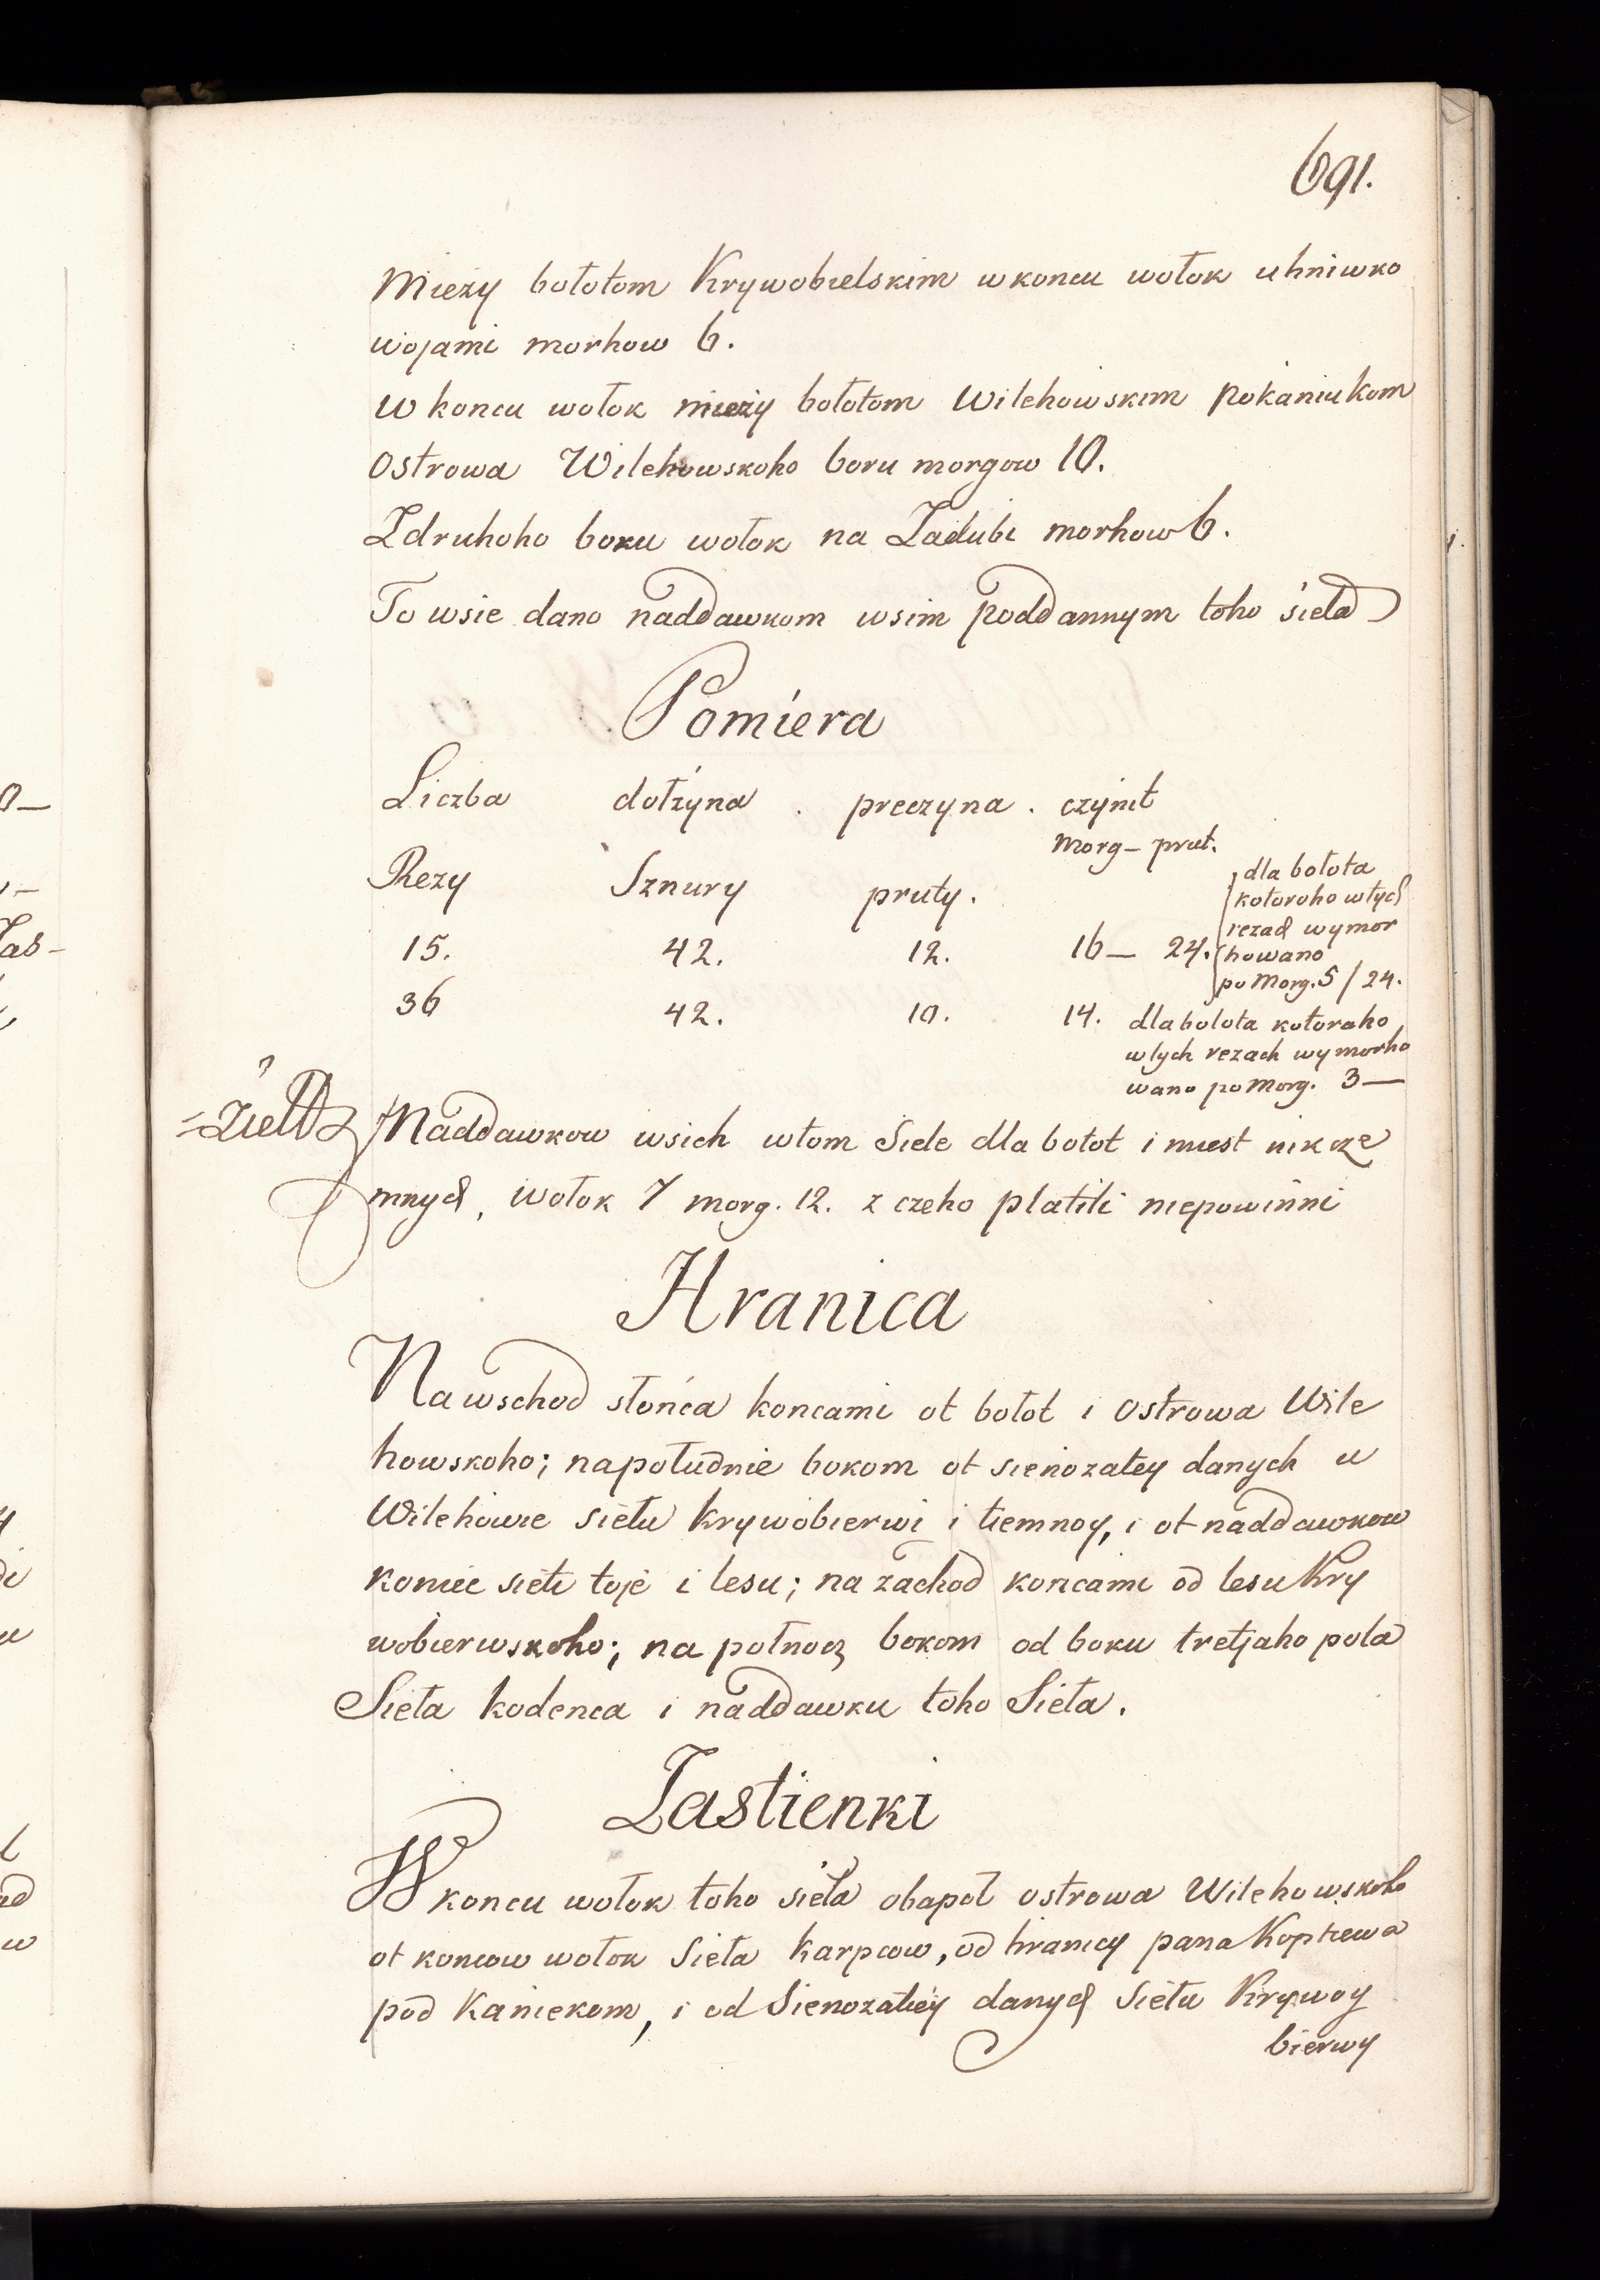 691.
Mieży bołotom Krywobielskim wkoncu wołok uhniwko
wojami morhow 6.
W koncu wołok mieży bołotom Wilehowskim pokaniukom
Ostrowa Wilehowskoho boru morgow 10.
Zdruhoho boku wołok na Zadubi morhow 6.
To wsie dano naddawkom wsim poddannym toho sieła
Pomiera
Liczba dołżyna . preczyna . czynit
Morg – prut.
Rezy Sznury pruty.
15. 42. 12. 16 — 24.
dla bołota
kotoroho wtych
rezach wymor
howano
po Morg. 5 / 24.
36 42. 10. 14. dla bolota kotoraho
wtych rezach wymorho
wano po Morg. 3 —
Naddawkow wsich wtom Siele dla bołot i miest nikcze
mnych, wołok 7 morg. 12. z czeho płatiti niepowinni
Hranica
Na wschod słońca koncami ot bołot i Ostrowa Wile
howskoho; napołudnie bokom ot sienożatey danych u
Wilehowie siełu Krywobierwi i tiemnoy, i ot naddawkow
koniec sieła toje i lesu; na zachod koncami od lesu Kry
wobierwskoho; na połnocz bokom od boku tretjaho pola
Sieła kodenca i naddawku toho Sieła.
Zastienki
W koncu wołok toho sieła obapoł ostrowa Wilehowskoho
ot koncow wołok Sieła Karpcow, od hranicy pana Koptiewa
pod Kaniekom, i od Sienożatiey danych Siełu Krywoy
bierwy